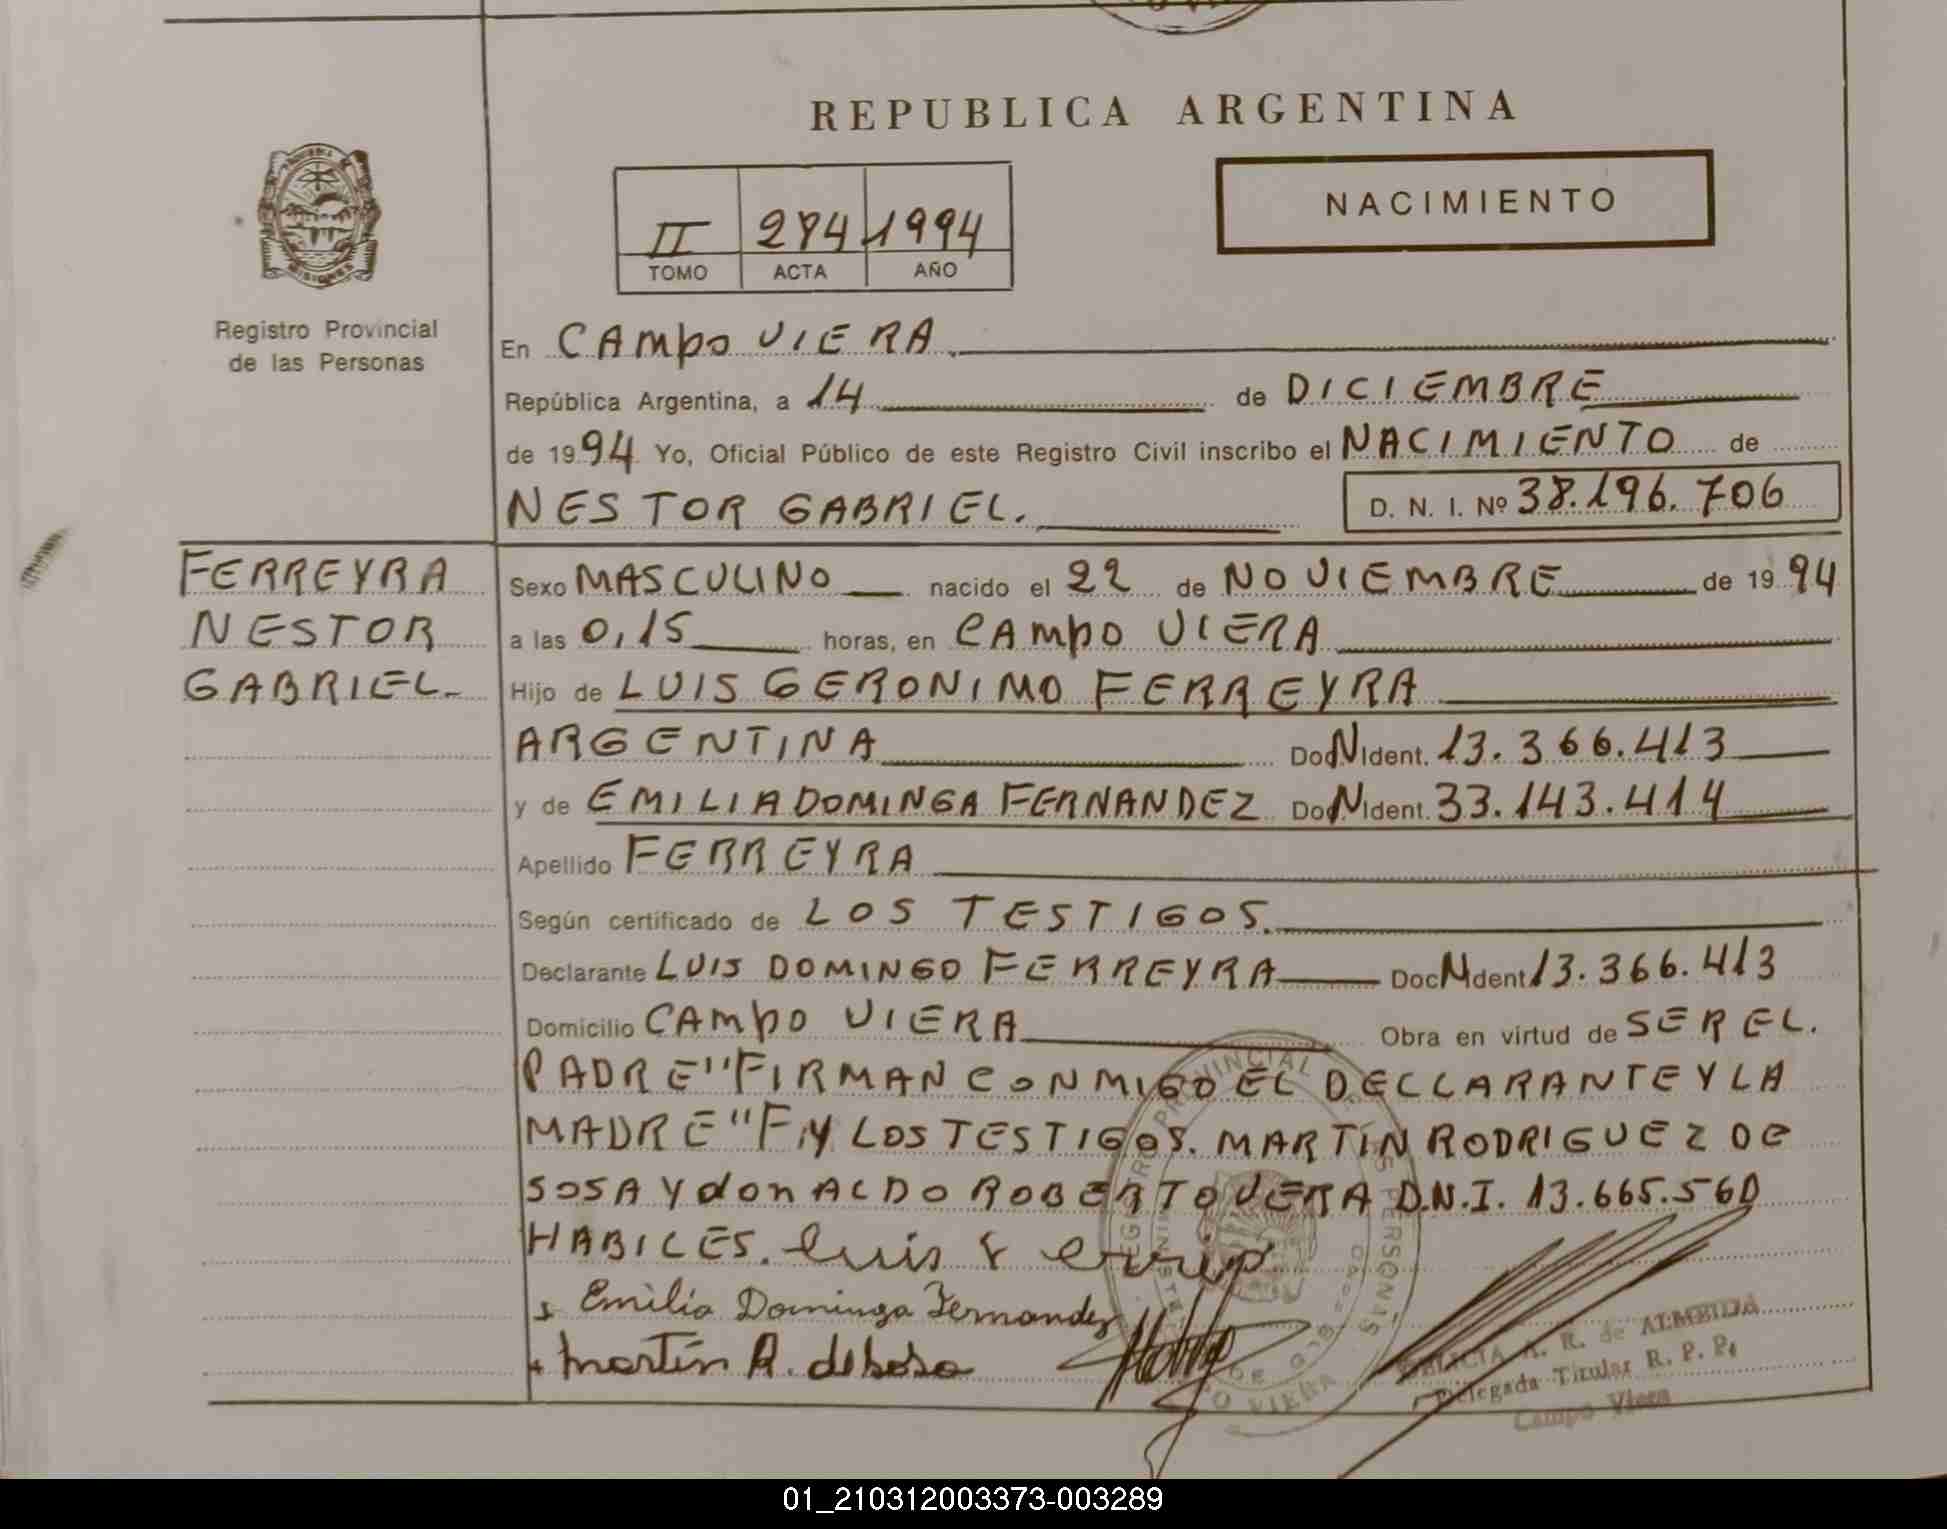 REPUBLICA ARGENTINA
NACIMIENTO
II 274 1994
TOMO ACTA AÑO
Registro Provincial
de las Personas
En CAMPO VIERA
República Argentina, a 14 de DICIEMBRE
de 1994 Yo, Oficial Público de este Registro Civil inscribo el NACIMIENTO de
NESTOR GABRIEL. D. N. I. Nº 38.196.706
FERREYRA
NESTOR
GABRIEL.
Sexo MASCULINO nacido el 22 de NOVIEMBRE de 1994
a las 0,15 horas, en CAMPO VIERA
Hijo de LUIS GERONIMO FERREYRA
ARGENTINA DocNIdent. 13.366.413
y de EMILIA DOMINGA FERNANDEZ DocNIdent. 33.143.414
Apellido FERREYRA
Según certificado de LOS TESTIGOS.
Declarante LUIS DOMINGO FERREYRA DocNIdent 13.366.413
Domicilio CAMPO VIERA Obra en virtud de SER EL.
PADRE "FIRMAN CONMIGO EL DECLARANTE Y LA
MADRE "F Y LOS TESTIGOS. MARTIN RODRIGUEZ DE
SOSA Y dONALDO ROBERTO VERA D.N.I. 13.665.560
HABILES. Luis
Emilia Dominga Fernandez
Martin R. de Sosa
A. R. de ALMEIDA
Delegada Titular R. P. P.
Campo Viera
01_210312003373-003289